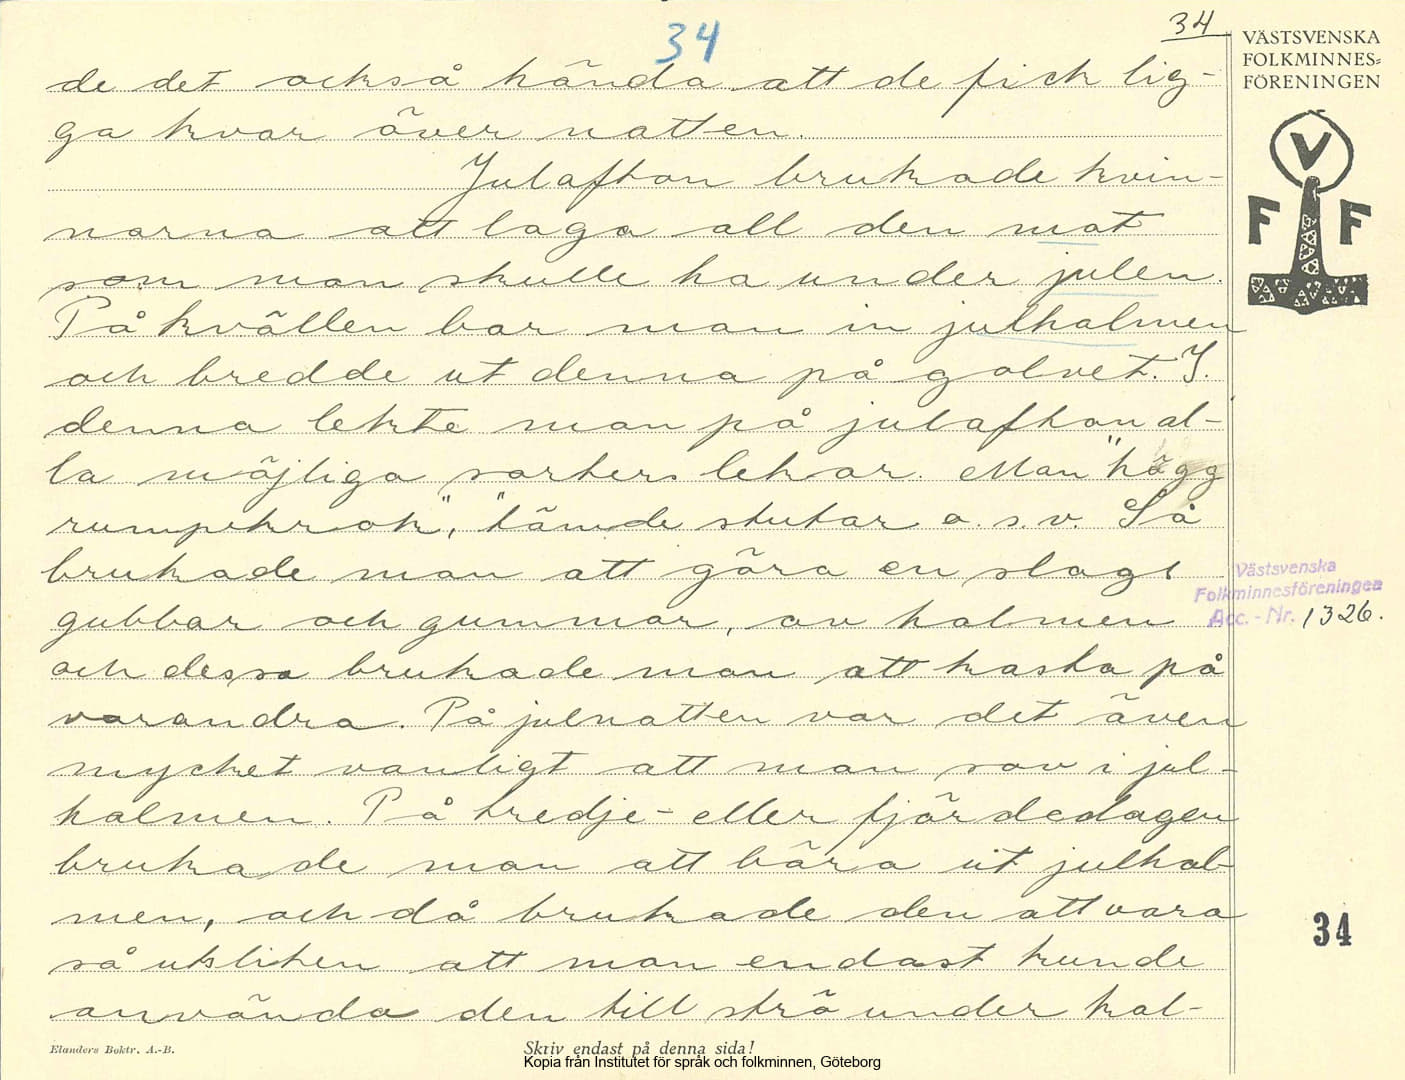 34
34
VÄSTSVENSKA
FOLKMINNES=
FÖRENINGEN
V
F F
de det också hända att de fick lig-
ga kvar över natten.
Julafton brukade kvin-
norna att laga all den mat
som man skulle ha under julen.
På kvällen bar man in julhalmen
och bredde ut denna på golvet. I.
denna lekte man på julafton al-
la möjliga sorters lekar. Man "högg
rumpekrok", "tämde stutar o. s. v. Så
brukade man att göra en slags
gubbar och gummor, av halmen
och dessa brukade man att kasta på
varandra. På julnatten var det även
mycket vanligt att man sov i jul-
halmen. På tredje- eller fjärdedagen
brukade man att bära ut julhal-
men, och då brukade den att vara
så utsliten att man endast kunde
använda den till strö under kal-
Västsvenska
Folkminnesföreningen
Acc. - Nr. 1326.
34
Elanders Boktr. A.-B.
Skriv endast på denna sida!
Kopia från Institutet för språk och folkminnen, Göteborg